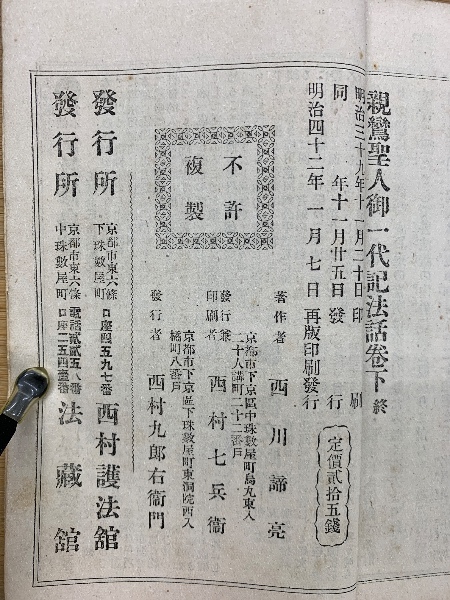 親鸞聖人御一代記法話卷下 終
明治三十九年十一月二十日印刷
同 年十一月廿五日發行
明治四十二年一月七日再版印刷發行
定價貳拾五錢
不許
複製
著作者 西川諦亮
京都市下京區中珠數屋町烏丸東入
二十人講町二十二番戶
發行兼
印刷者 西村七兵衞
京都市下京區下珠數屋町東洞院西入
橘町八番戶
發行者 西村九郎右衞門
發行所 京都市東六條
下珠數屋町 口座四五九七番 西村護法館
發行所 京都市東六條
中珠數屋町 電話貳貳五八番
口座二五四壹番 法藏館